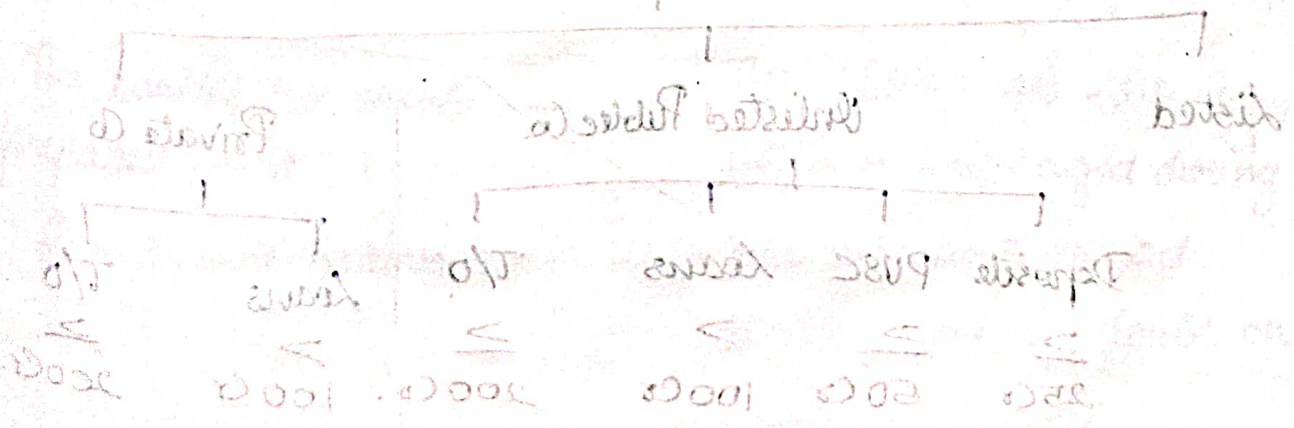 Listed Unlisted Public Co Private Co
Deposits PUSC Loans T/O Loans T/O
≥ ≥ > ≥ > ≥
25Cr 50Cr 100Cr 200Cr. 100Cr 200Cr.